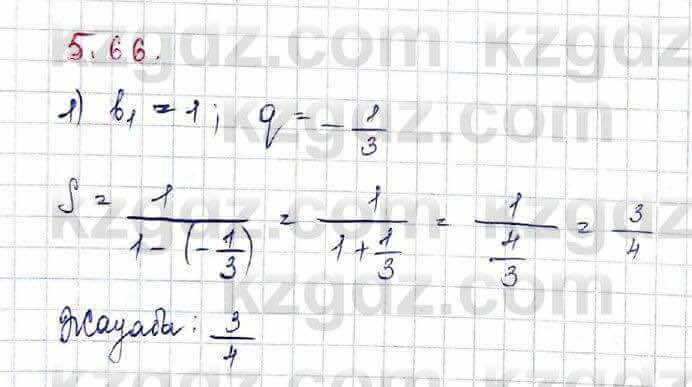 5.66.
1) b₁ = 1; q = -1/3
S = 1/(1-(-1/3)) = 1/(1+1/3) = 1/(4/3) = 3/4
Жауабы: 3/4
kzgdz.com kzgdz.com
kzgdz.com kzgdz.com
kzgdz.com kzgdz.com